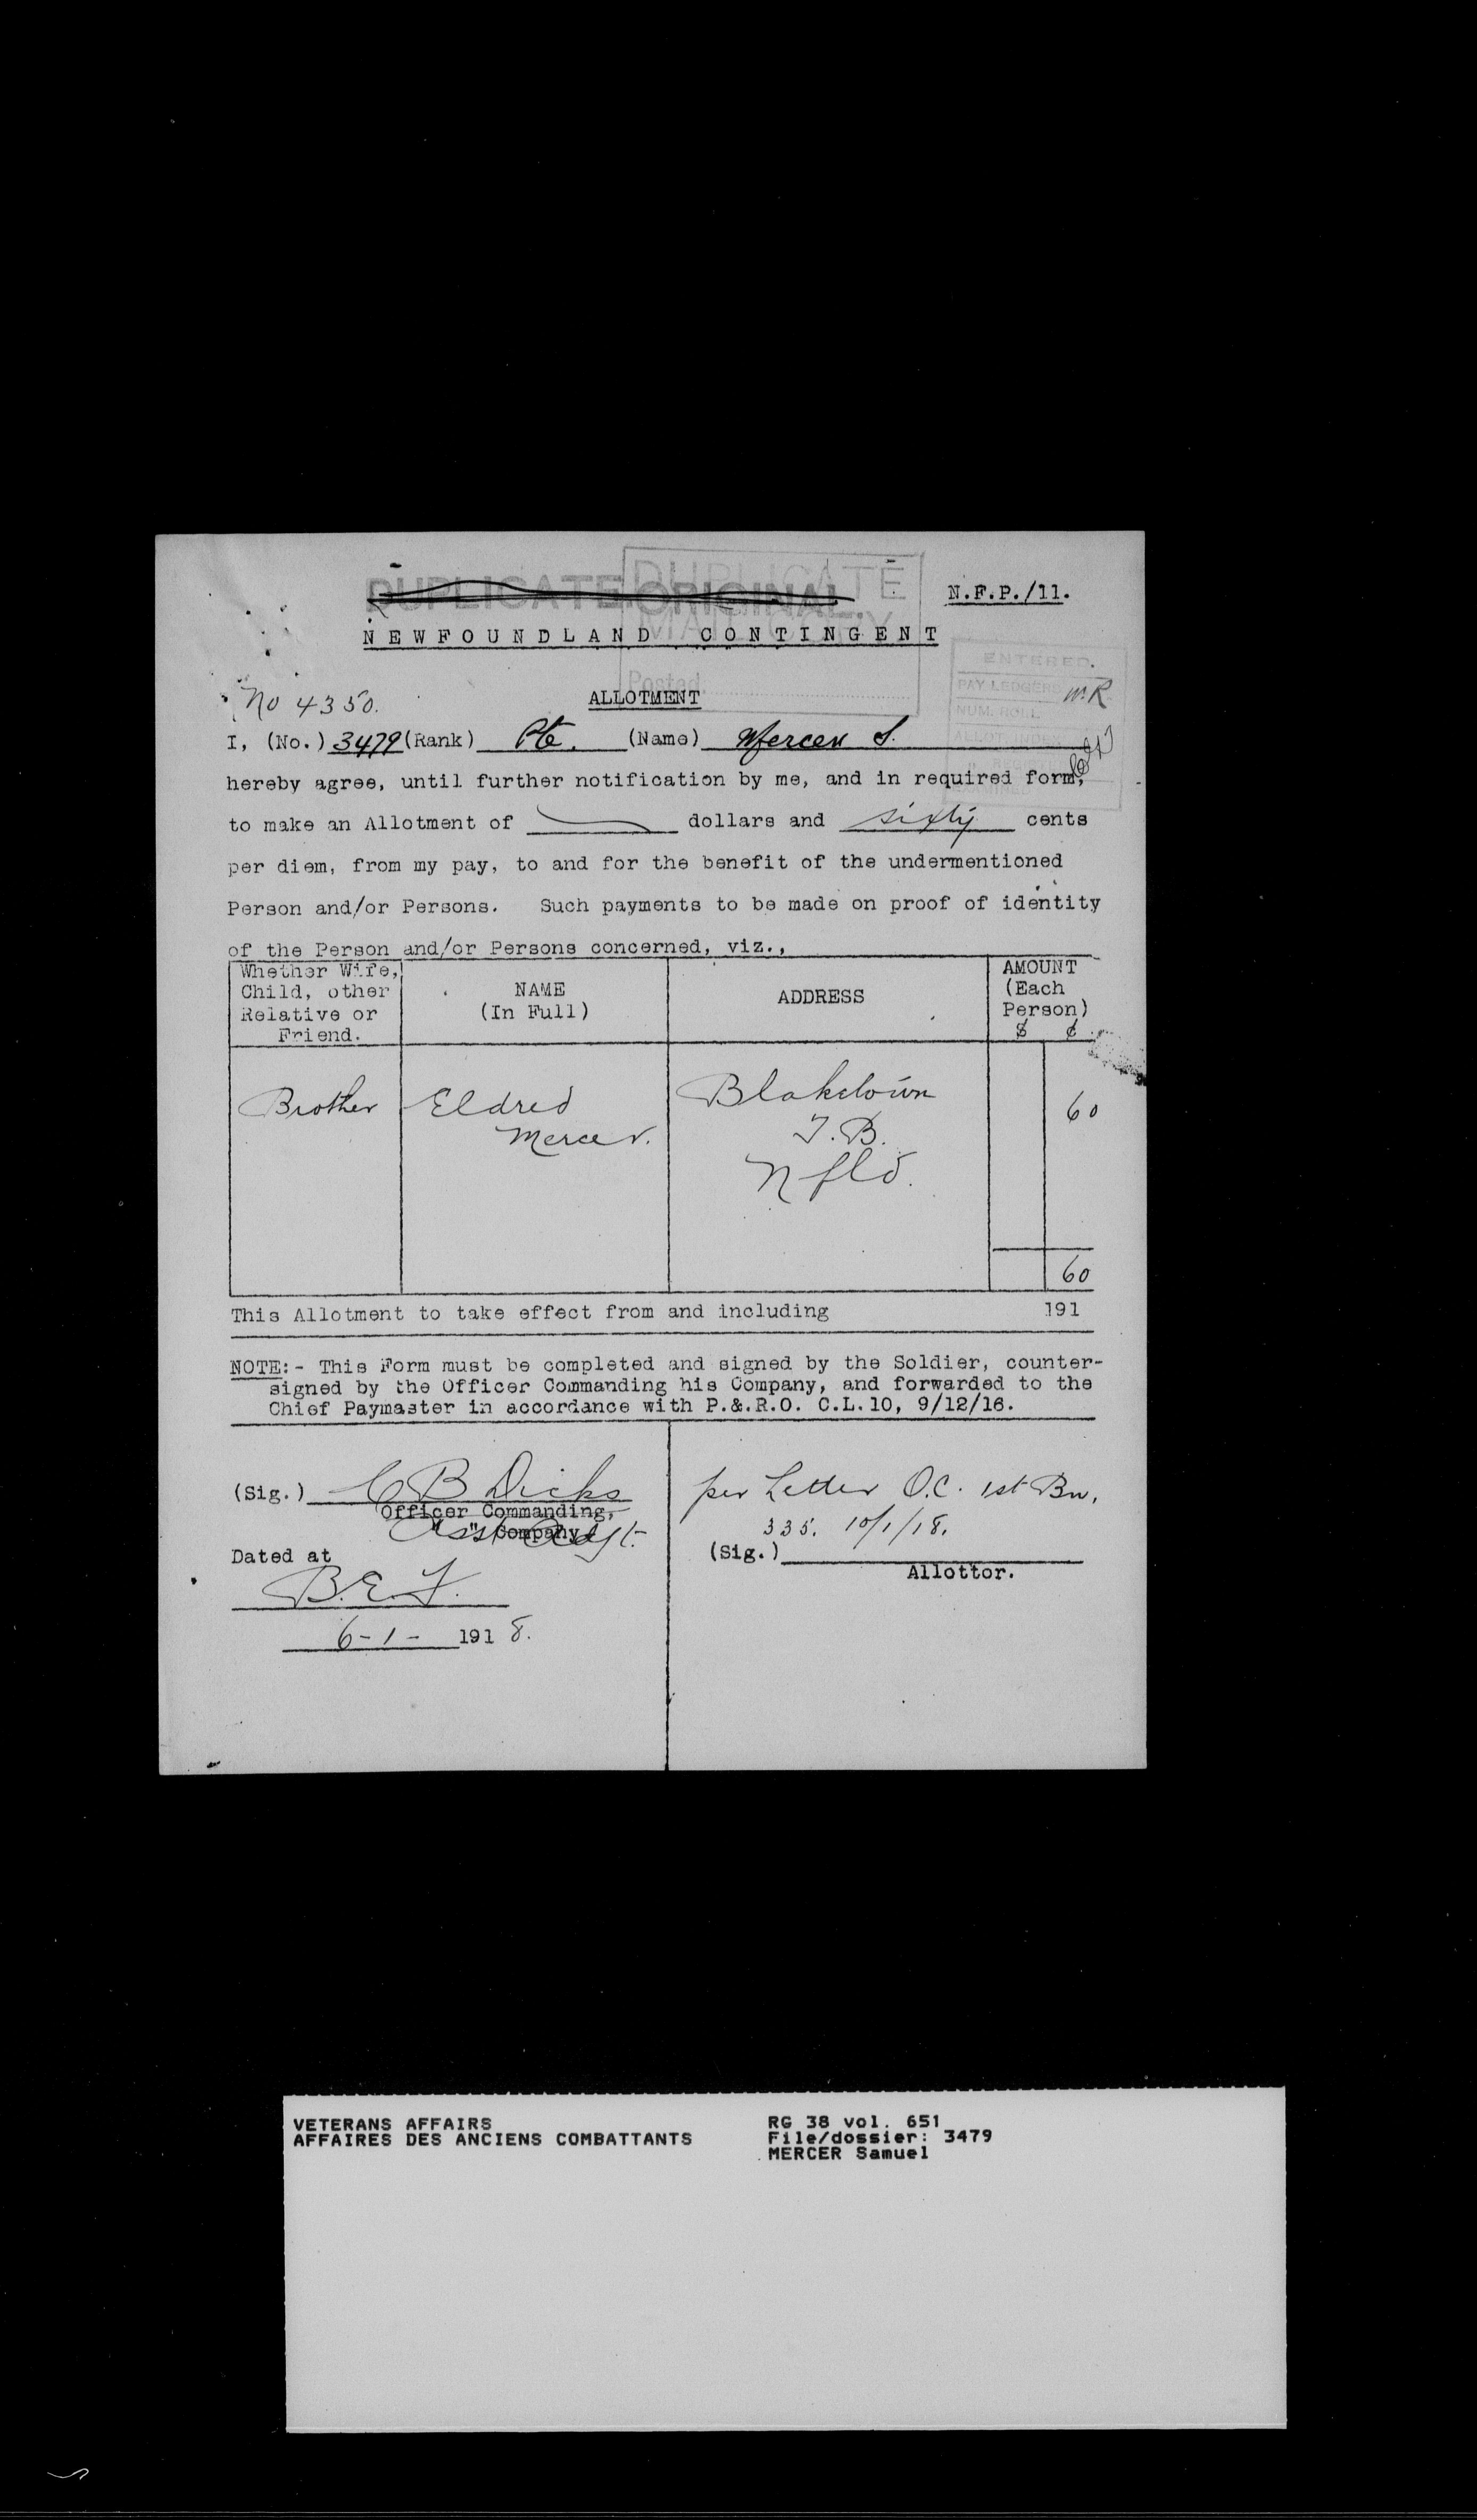 DUPLICATE ORIGINAL.
DUPLICATE
MAIL COPY
Posted
N.F.P./11.
NEWFOUNDLAND CONTINGENT
ENTERED.
PAY LEDGERS W.R
NUM. ROLL
ALLOT. INDEX
No 4350.
ALLOTMENT
I, (No.) 3479 (Rank) Pte. (Name) Mercer S.
hereby agree, until further notification by me, and in required form,
to make an Allotment of dollars and sixty cents
per diem, from my pay, to and for the benefit of the undermentioned
Person and/or Persons. Such payments to be made on proof of identity
of the Person and/or Persons concerned, viz.,
Whether Wife, Child, other Relative or Friend.
NAME (In Full)
ADDRESS
AMOUNT (Each Person) $ ¢
Brother
Eldred Mercer.
Blaketown
T.B.
Nfld.
60
60
This Allotment to take effect from and including 191
NOTE:- This Form must be completed and signed by the Soldier, counter-
signed by the Officer Commanding his Company, and forwarded to the
Chief Paymaster in accordance with P.&.R.O. C.L.10, 9/12/16.
(Sig.) C B Dicks
Officer Commanding,
" " Company.
Asst Adjt.
Dated at
B.E.F.
6-1- 1918.
per Letter O.C. 1st Bn.
335. 10/1/18.
(Sig.)
Allottor.
VETERANS AFFAIRS
AFFAIRES DES ANCIENS COMBATTANTS
RG 38 vol. 651
File/dossier: 3479
MERCER Samuel